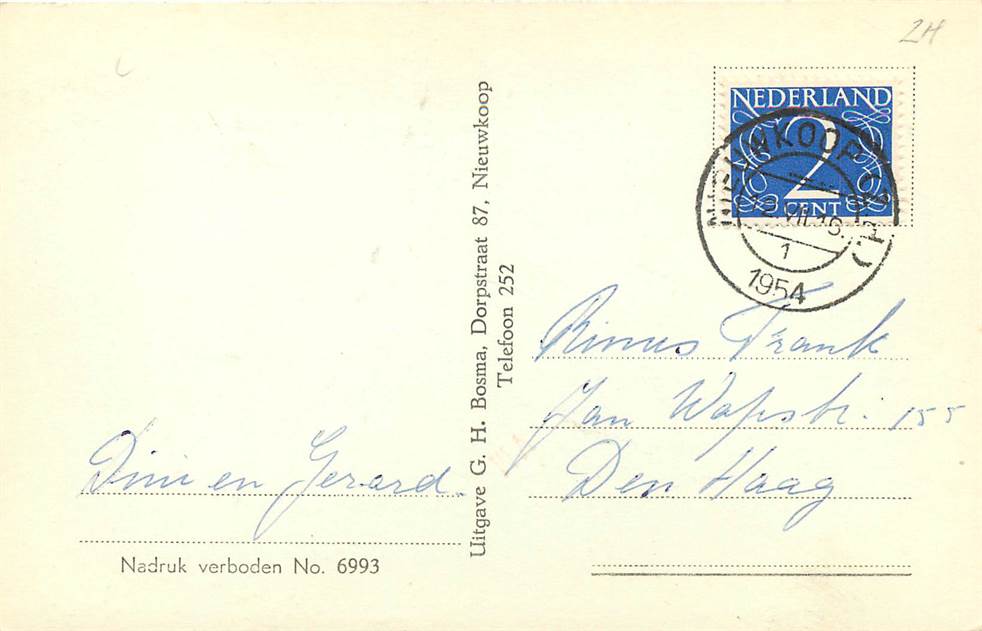 2H
NEDERLAND
2
CENT
NIEUWKOOP (Z.H.)
12.VII.16.
1
1954
Uitgave G. H. Bosma, Dorpstraat 87, Nieuwkoop
Telefoon 252
Rinus Frank
Jan Wapstr. 155
Den Haag
Dini en Gerard.
Nadruk verboden No. 6993